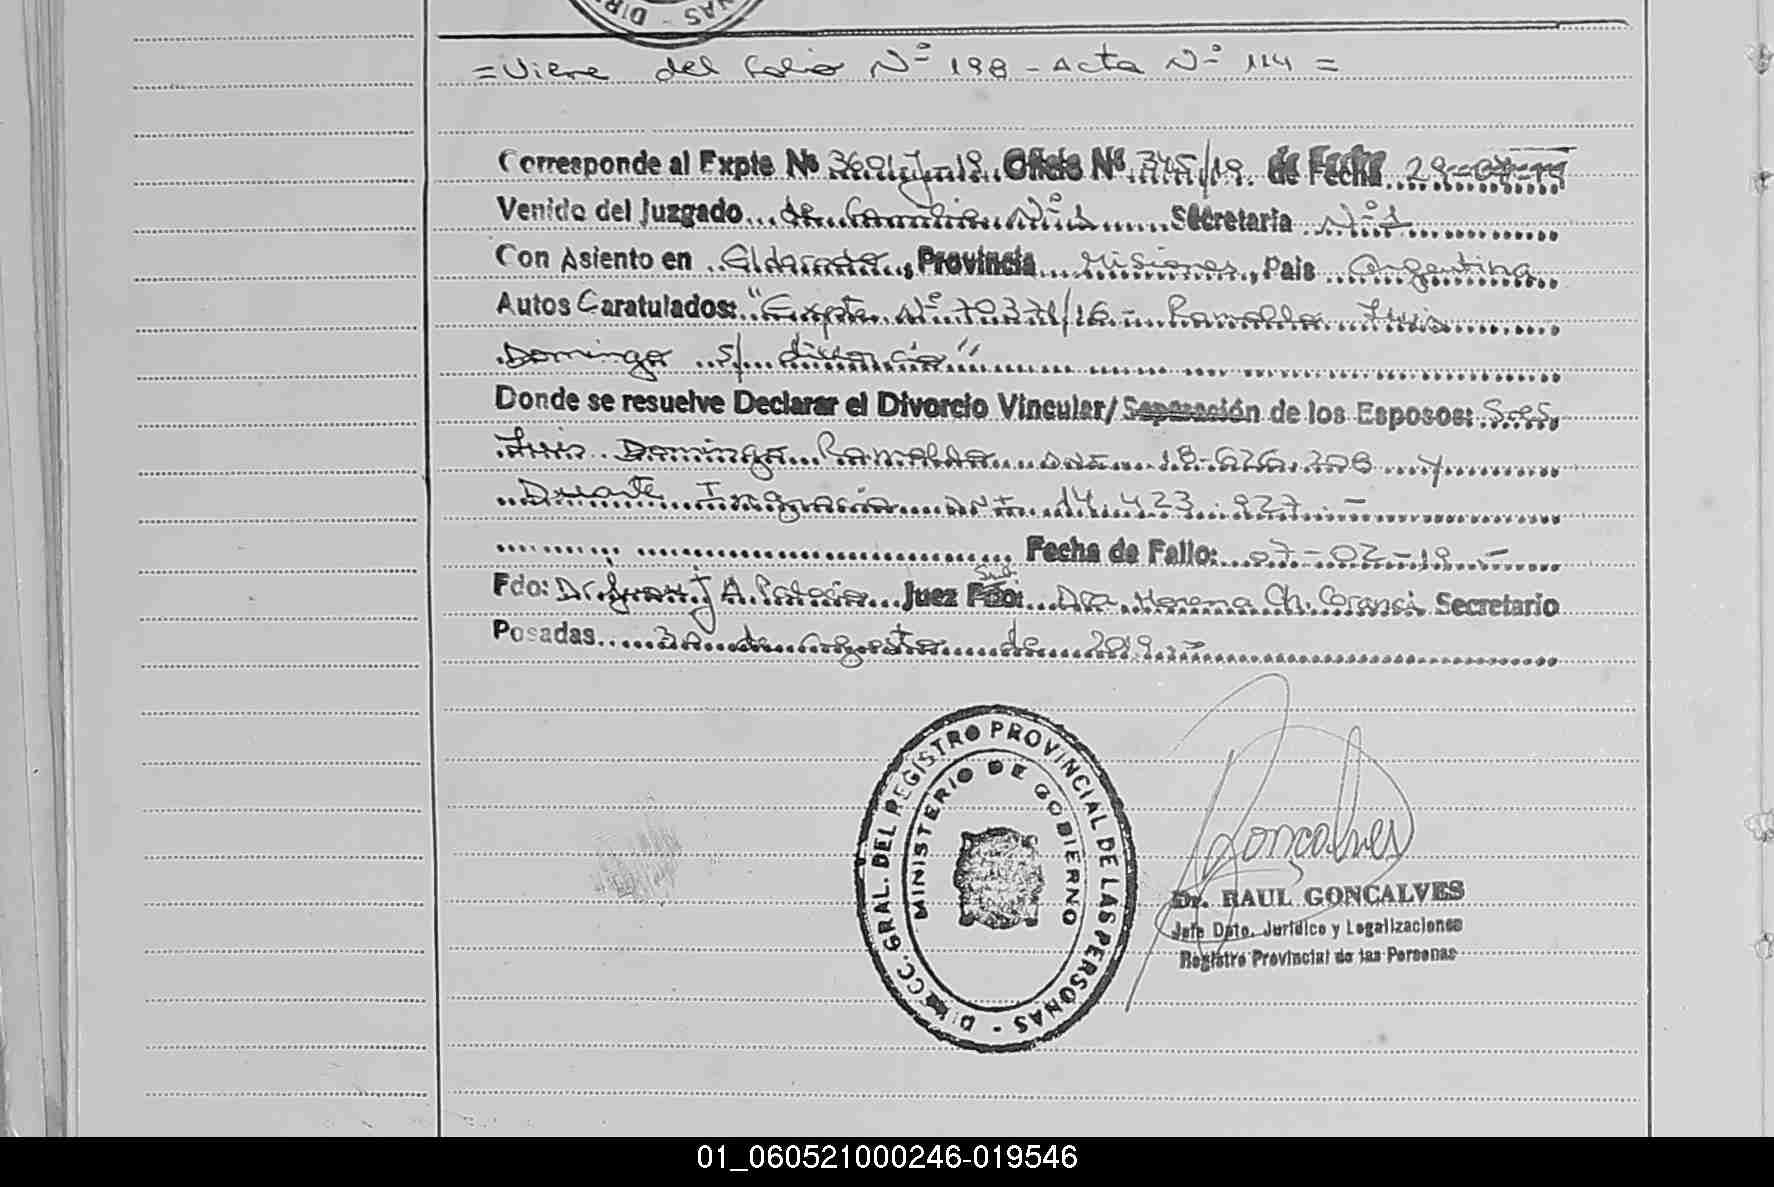 DIR NAS - DIR
= Viene del folio Nº 198 - Acta Nº 114 =
Corresponde al Expte Nº 3691-J-19. Oficio Nº 345/19. de Fecha 29-07-19
Venido del Juzgado de Familia Nº 1 Secretaria Nº 1
Con Asiento en Eldorado, Provincia Misiones, Pais Argentina
Autos Caratulados: "Expte. Nº 79371/16 - Ramalho Luis
Domingo s/ divorcio"
Donde se resuelve Declarar el Divorcio Vincular/ Separación de los Esposos: Sres.
Luis Domingo Ramalho DNI 18.626.308 y
Duarte Ingracia DNI 14.423.927. -
Fecha de Fallo: 07-02-19 -
Fdo: Dr. Juan J A. Juez Fdo: Dra. Morena Ch. Secretario
Posadas 30 de Agosto de 2019. -
DIRECC. GRAL. DEL REGISTRO PROVINCIAL DE LAS PERSONAS -
MINISTERIO DE GOBIERNO
Goncalves
Dr. RAUL GONCALVES
Jefe Dpto. Jurídico y Legalizaciones
Registro Provincial de las Personas
01_060521000246-019546